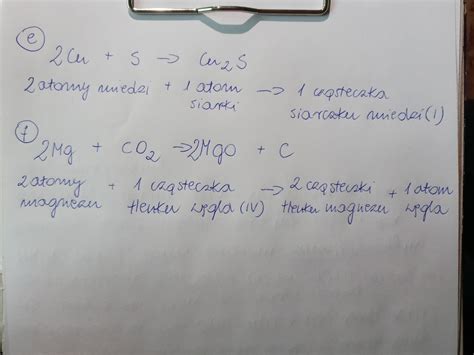 e
2Cu + S → Cu₂S
2 atomy miedzi + 1 atom siarki → 1 cząsteczka siarczku miedzi (I)
f
2Mg + CO₂ → 2MgO + C
2 atomy magnezu + 1 cząsteczka tlenku węgla (IV) → 2 cząsteczki tlenku magnezu + 1 atom węgla